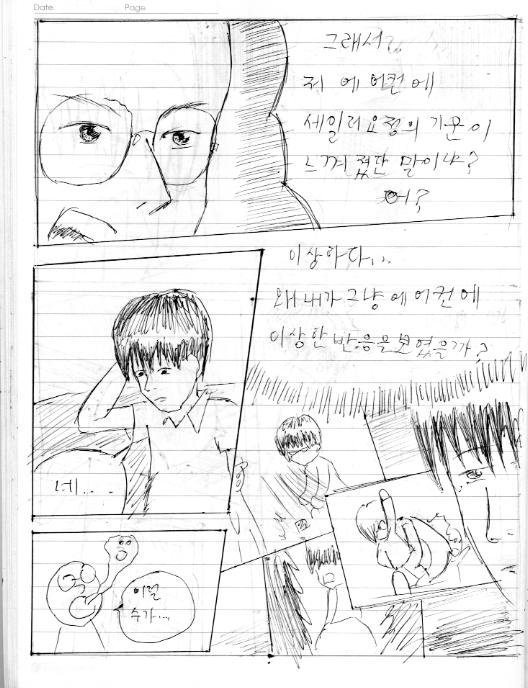 Date.
Page
그래서..
저 에어컨에
세일러요정의 기운이
느껴졌단 말이냐?
어?
이상하다...
왜 내가 그냥 에어컨에
이상한 반응을 보였을까?
네...
이럴
수가...